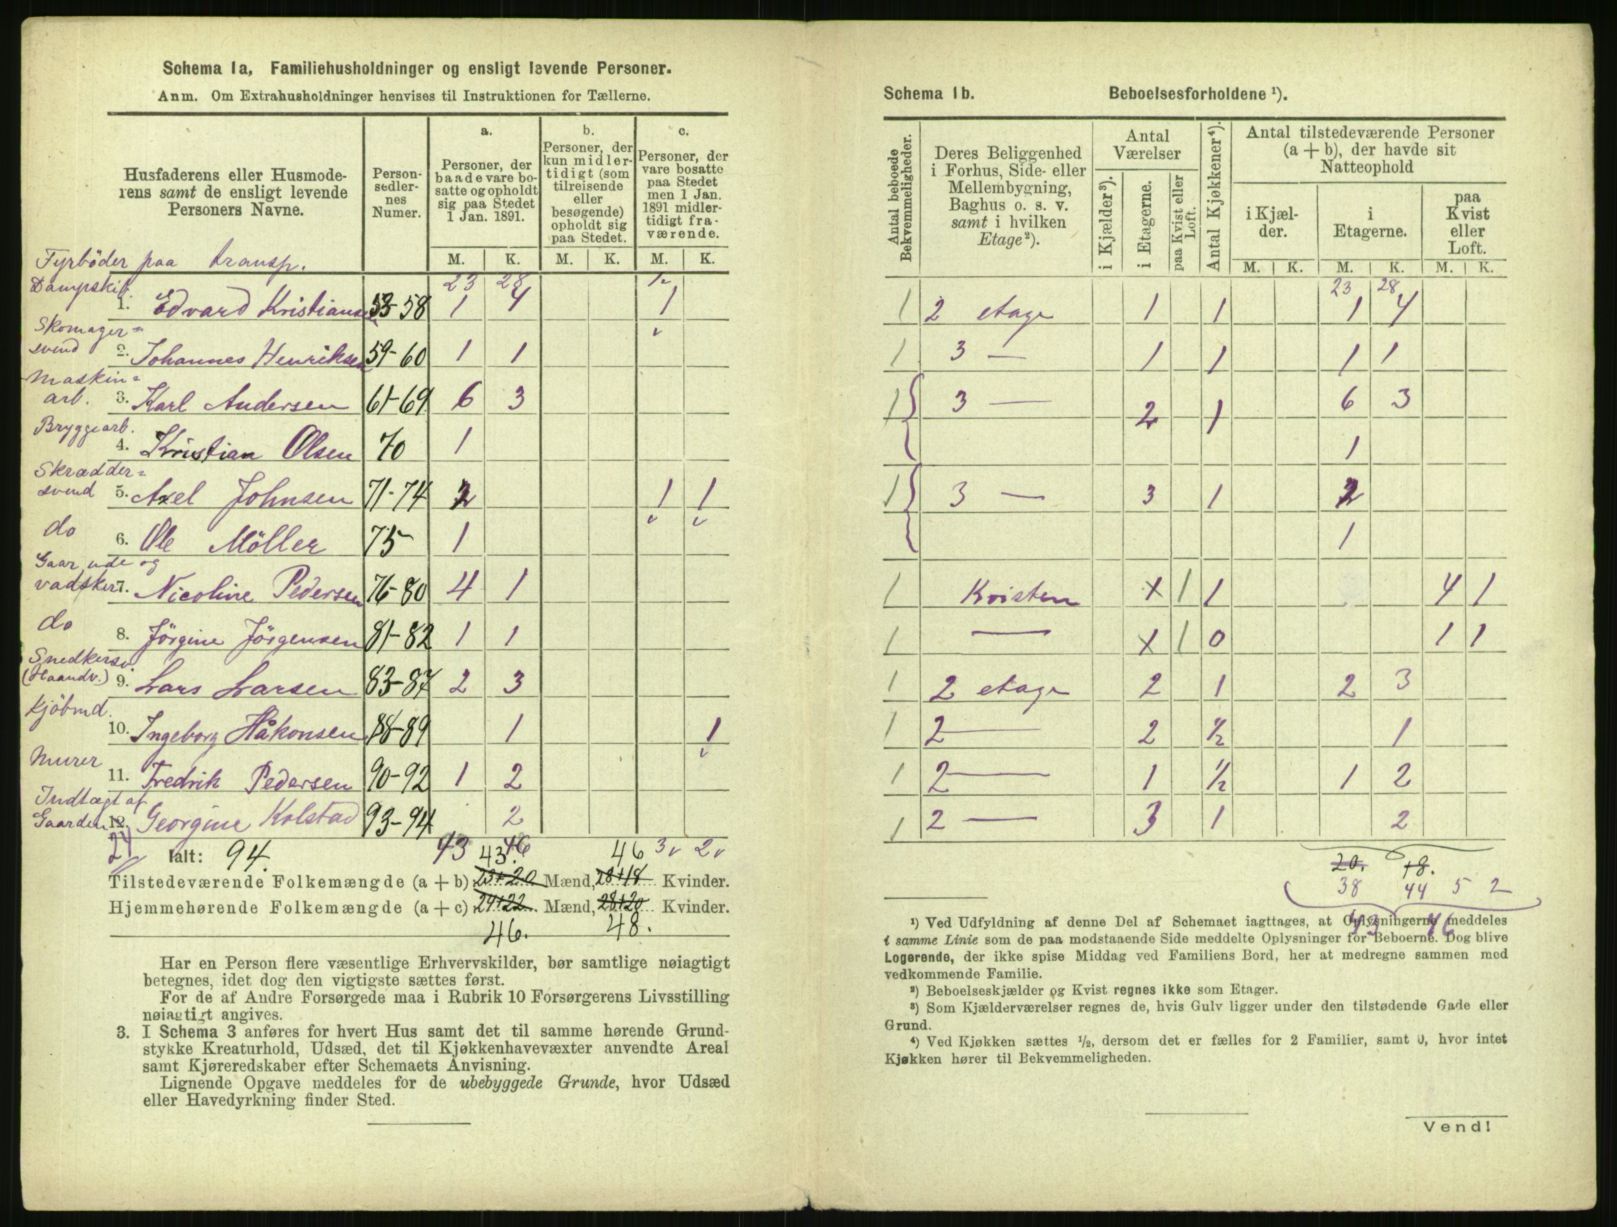 Schema 1a, Familiehusholdninger og ensligt levende Personer.
Anm. Om Extrahusholdninger henvises til Instruktionen for Tællerne.
Husfaderens eller Husmoderens samt de ensligt levende Personers Navne.
Personsedlernes Numer.
a. Personer, der baade vare bosatte og opholdt sig paa Stedet 1 Jan. 1891.
b. Personer, der kun midlertidigt (som tilreisende eller besøgende) opholdt sig paa Stedet.
c. Personer, der vare bosatte paa Stedet men 1 Jan. 1891 midlertidigt fraværende.
M. K. M. K. M. K.
23 28
Fyrbøder paa transp.
Dampskib. 1. Edvard Kristiansen 53-58 1 4 1
Skomagersvend 2. Johannes Henriksen 59-60 1 1
Maskinarb. 3. Karl Andersen 61-69 6 3
Bryggearb. 4. Kristian Olsen 70 1
Skræddersvend 5. Axel Johnsen 71-74 2 1 1
do 6. Ole Möller 75 1
Gaar ude og vadsker 7. Nicoline Pedersen 76-80 4 1
do 8. Jörgine Jörgensen 81-82 1 1
Snedkersv. (Haandv.) 9. Lars Larsen 83-87 2 3
Kjöbmd. 10. Ingeborg Håkonsen 88-89 1 1
Murer 11. Fredrik Pedersen 90-92 1 2
Indtægt af Gaarden 12. Georgine Kolstad 93-94 2
24 Ialt: 94. 43 46 3 2
43. 46
Tilstedeværende Folkemængde (a + b) 23+20 Mænd, 28+18 Kvinder.
Hjemmehørende Folkemængde (a + c) 24+22 Mænd, 28+20 Kvinder.
46. 48.
Har en Person flere væsentlige Erhvervskilder, bør samtlige nøiagtigt
betegnes, idet dog den vigtigste sættes først.
For de af Andre Forsørgede maa i Rubrik 10 Forsørgerens Livsstilling
nøiagtigt angives.
3. I Schema 3 anføres for hvert Hus samt det til samme hørende Grund-
stykke Kreaturhold, Udsæd, det til Kjøkkenhavevæxter anvendte Areal
samt Kjøreredskaber efter Schemaets Anvisning.
Lignende Opgave meddeles for de ubebyggede Grunde, hvor Udsæd
eller Havedyrkning finder Sted.
Schema 1b. Beboelsesforholdene ¹).
Antal beboede Bekvemmeligheder.
Deres Beliggenhed i Forhus, Side- eller Mellembygning, Baghus o. s. v. samt i hvilken Etage²).
Antal Værelser
i Kjælder³). i Etagerne. paa Kvist eller Loft.
Antal Kjøkkener⁴).
Antal tilstedeværende Personer (a + b), der havde sit Natteophold
i Kjælder. i Etagerne. paa Kvist eller Loft.
M. K. M. K. M. K.
23 28
1 2 etage 1 1 1 4
1 3 — 1 1 1 1
1 3 — 2 1 6 3
1
1 3 — 3 1 2
1
1 Kvisten x 1 1 4 1
1 — x 1 0 1 1
1 2 etage 2 1 2 3
1 2 — 2 ½ 1
1 2 — 1 ½ 1 2
1 2 — 3 1 2
20. 18.
38 44 5 2
43 46
¹) Ved Udfyldning af denne Del af Schemaet iagttages, at Oplysningerne meddeles
i samme Linie som de paa modstaaende Side meddelte Oplysninger for Beboerne. Dog blive
Logerende, der ikke spise Middag ved Familiens Bord, her at medregne sammen med
vedkommende Familie.
²) Beboelseskjælder og Kvist regnes ikke som Etager.
³) Som Kjælderværelser regnes de, hvis Gulv ligger under den tilstødende Gade eller
Grund.
⁴) Ved Kjøkken sættes ½, dersom det er fælles for 2 Familier, samt 0, hvor intet
Kjøkken hører til Bekvemmeligheden.
Vend!